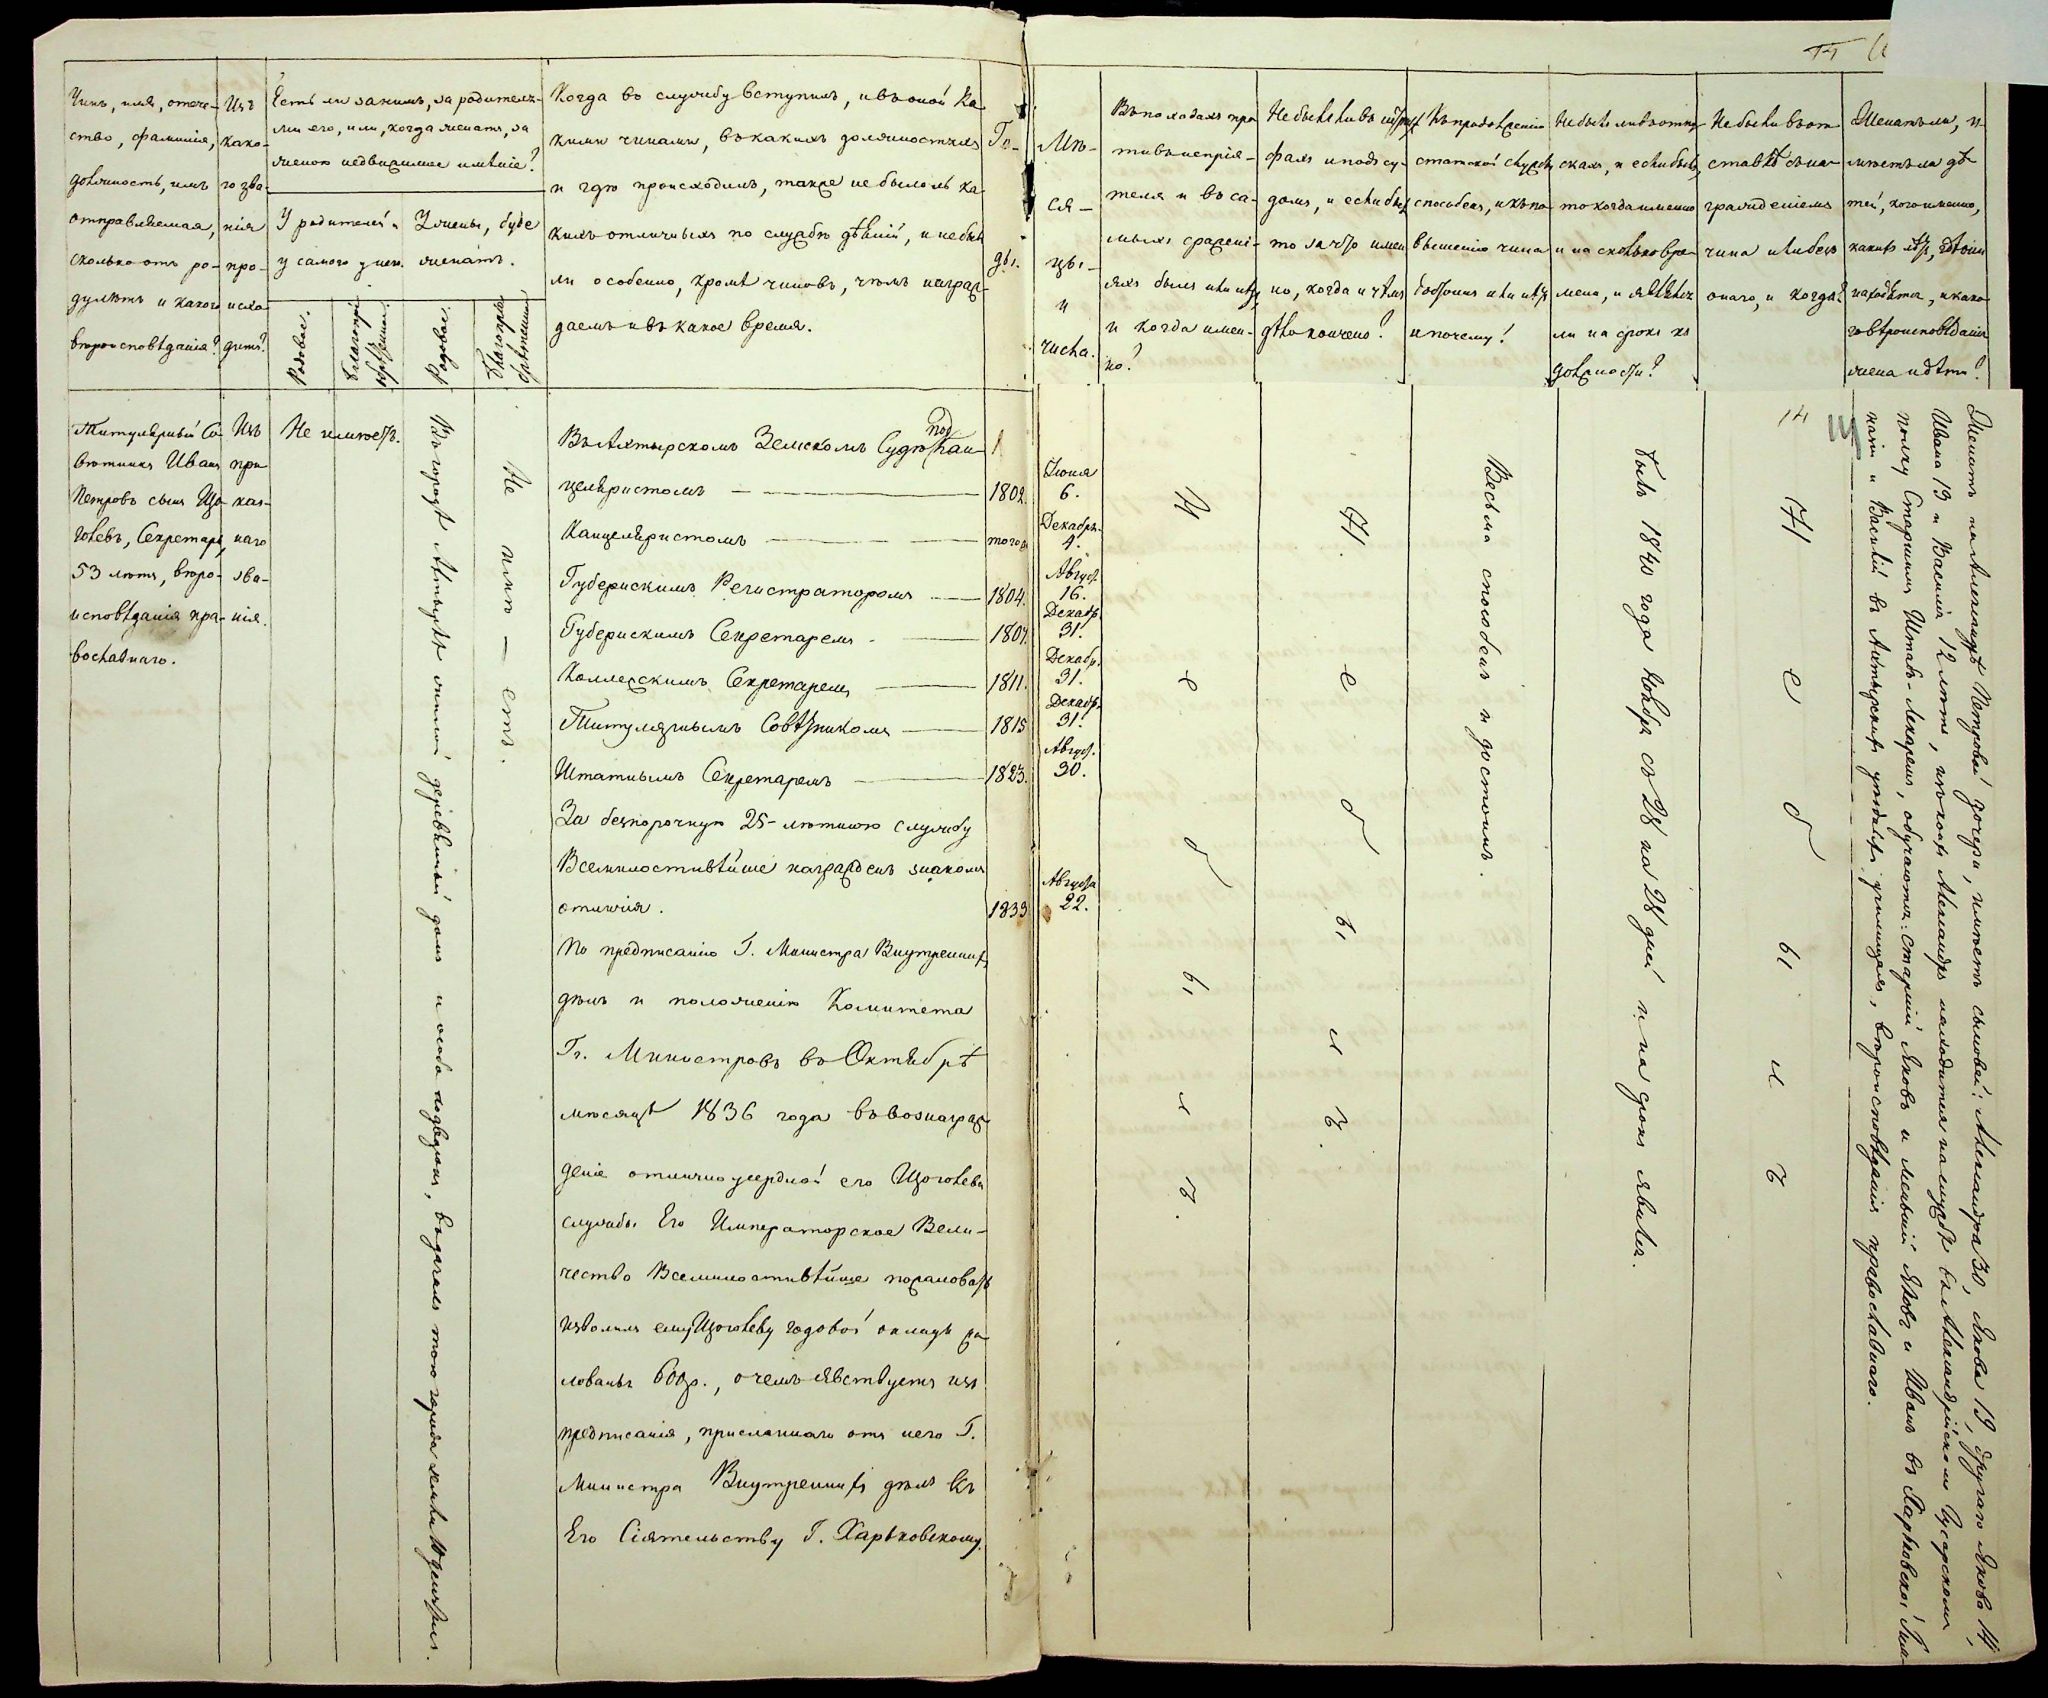 Чинъ, имя, отече-
ство, фамилія,
должность, имъ
отправляемая,
сколько отъ ро-
ду лѣтъ и какого
вѣроисповѣданія?
Изъ
како-
го зва-
нія
про-
исхо-
дитъ?
Есть ли за нимъ, за родителя-
ми его, или, когда женатъ, за
женою недвижимое имѣніе?
У родителей и
у самого у него.
У жены, буде
женатъ.
Родовое.
Благопрі-
обрѣтенное.
Родовое.
Благопріо-
брѣтенное.
Когда въ службу вступилъ, и въ оной ка-
кими чинами, въ какихъ должностяхъ
и гдѣ происходилъ, также не было ль ка-
кихъ отличныхъ по службѣ дѣяній, и не былъ
ли особенно, кромѣ чиновъ, чѣмъ награж-
даемъ и въ какое время.
Го-
ды.
Мѣ-
ся-
цы
и
числа.
Въ походахъ про-
тивъ непрія-
теля и въ са-
мыхъ сражені-
яхъ былъ или нѣтъ,
и когда имен-
но?
Не былъ ли въ штра-
фахъ и подъ су-
домъ, и если былъ,
то за что имен-
но, когда и чѣмъ
дѣло кончено?
Къ продолженію
статской службы
способенъ, и къ по-
вышенію чина
достоинъ или нѣтъ
и почему?
Не былъ ли въ отпу-
скахъ, и если былъ,
то когда именно
и на сколько вре-
мени, и являлся
ли на срокъ къ
должности?
Не былъ ли въ от-
ставкѣ съ на-
гражденіемъ
чина или безъ
онаго, и когда?
Женатъ ли, и-
мѣетъ ли дѣ-
тей, кого именно,
какихъ лѣтъ, гдѣ они
находятся, и како-
го вѣроисповѣданія
жена и дѣти?
Титулярный Со-
вѣтникъ Иванъ
Петровъ сынъ Що-
голевъ, Секретарь,
53 лѣтъ, вѣро-
исповѣданія пра-
вославнаго.
Изъ
при-
каз-
наго
зва-
нія.
Не имѣетъ.
Въ городѣ Ахтыркѣ жилой деревянный домъ и особо подворокъ, въ дачахъ того города земли 10 десятинъ.
Не имѣ-етъ.
Въ Ахтырскомъ Земскомъ Судѣ под Кан-
целяристомъ 1802. Іюня 6.
Канцеляристомъ того ж Декабря 4.
Губернскимъ Регистраторомъ 1804. Август. 16.
Губернскимъ Секретаремъ 1807. Декабр. 31.
Коллежскимъ Секретаремъ 1811. Декабр. 31.
Титулярнымъ Совѣтникомъ 1815 Декабр. 31.
Штатнымъ Секретаремъ 1823. Август. 30.
За безпорочную 25-лѣтнюю службу
Всемилостивѣйше награжденъ знакомъ
отличія. 1833 Августа 22.
По предписанію Г. Министра Внутреннихъ
дѣлъ и положенію Комитета
Гг. Министровъ въ Октябрѣ
мѣсяцѣ 1836 года въ вознаграж-
деніе отлично усердной его Щоголева
службы Его Императорское Вели-
чество Всемилостивѣйше пожаловать
изволилъ ему Щоголеву годовой окладъ жа-
лованья 600 р., о чемъ явствуетъ изъ
предписанія, присланнаго отъ него Г.
Министра Внутреннихъ дѣлъ къ
Его Сіятельству Г. Харьковскому
Не былъ.
Не былъ.
Весьма способенъ и достоинъ.
Былъ 1840 года Ноября съ 28 на 28 дней и на срокъ явился.
14
Не былъ
Женатъ на Александрѣ Петровой дочери, имѣетъ сыновей: Александра 30, Якова 19, другаго Якова 14,
Ивана 13 и Василія 12 лѣтъ, изъ коихъ Александръ находится на службѣ въ Александрійскомъ Гусарскомъ
полку Старшимъ Штабъ-Лекаремъ, обучаются: старшій Яковъ и меньшій Яковъ и Иванъ въ Харьковской Гим-
назіи и Василій въ Ахтырскомъ уѣздномъ училищѣ, вѣроисповѣданія православнаго.